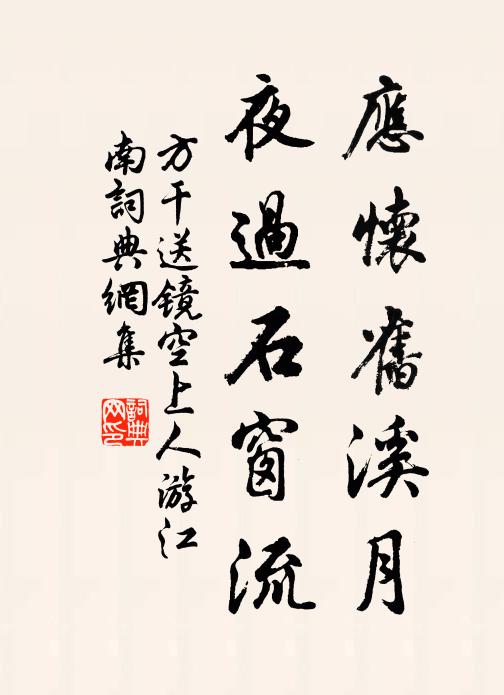 應懷舊溪月
夜過石窗流
方干送鏡空上人游江
南詞典網集
詞典
网印